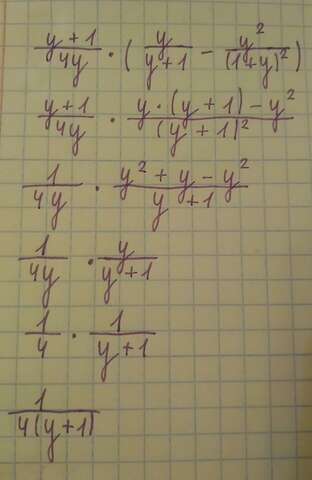 (y + 1)/(4y) · (y/(y + 1) - y²/(1 + y)²)
(y + 1)/(4y) · (y · (y + 1) - y²)/(y + 1)²
1/(4y) · (y² + y - y²)/(y + 1)
1/(4y) · y/(y + 1)
1/4 · 1/(y + 1)
1/(4(y + 1))